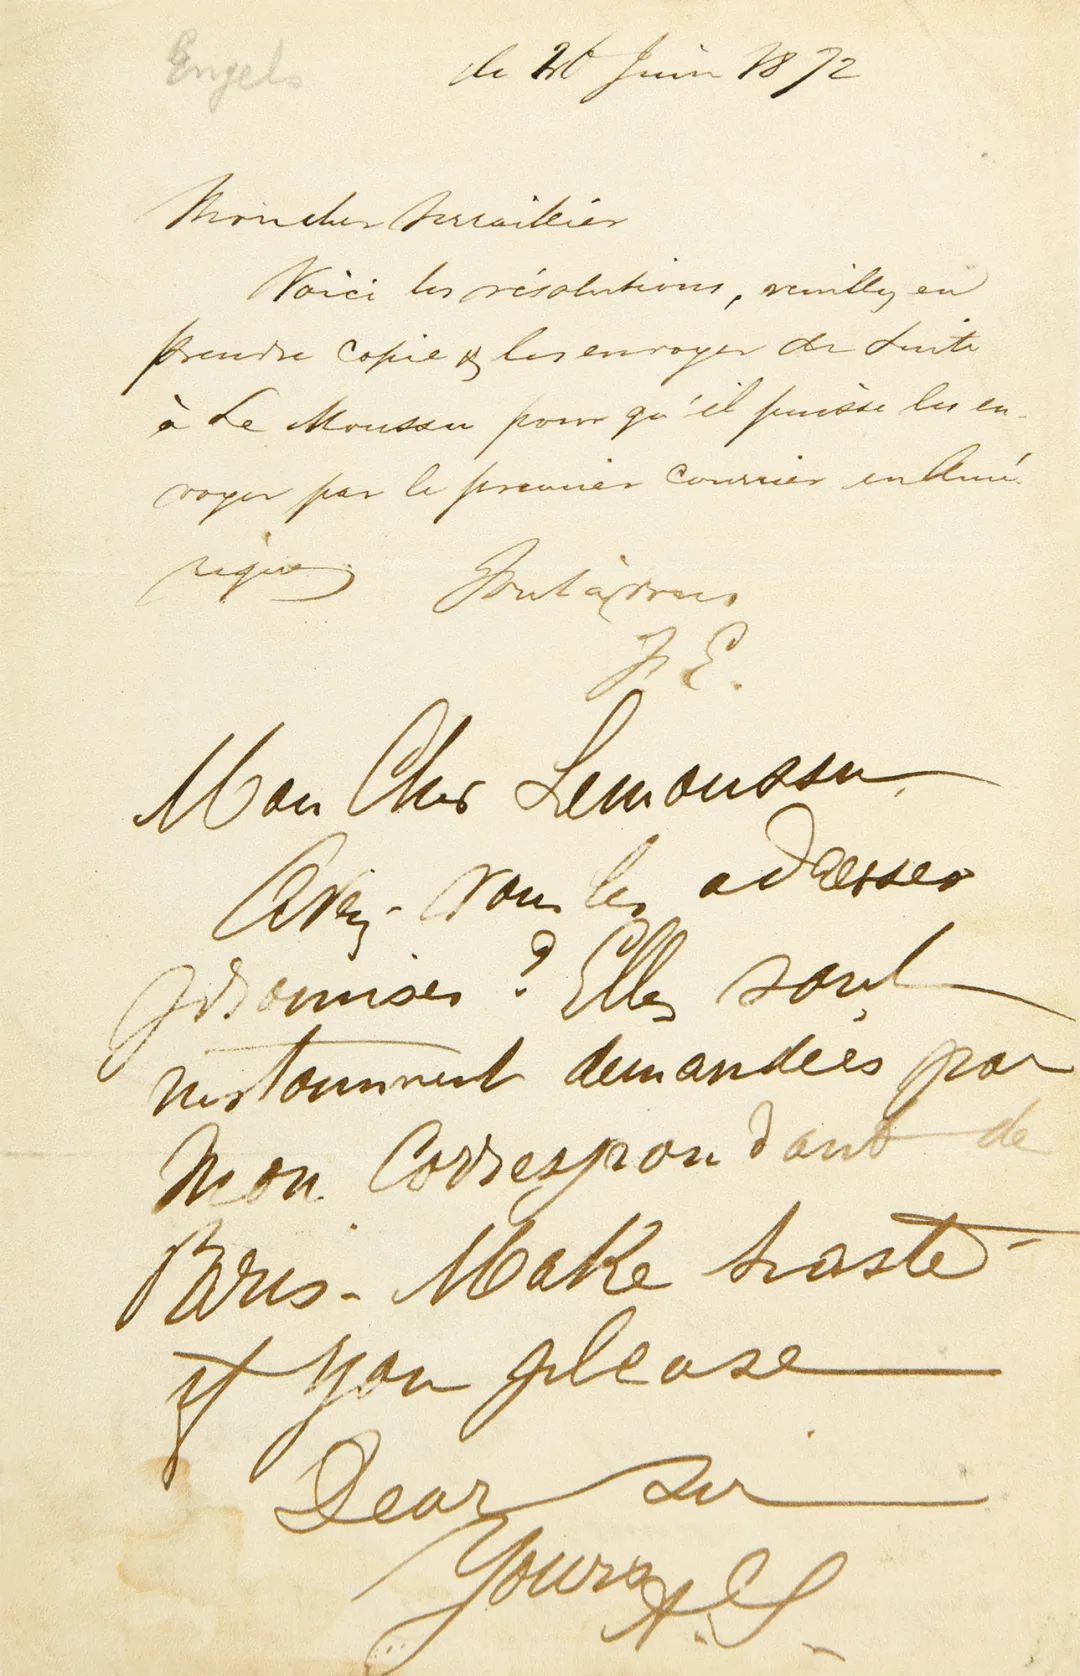 Engels
le 20 Juin 1872
Mon cher Serraillier
Voici les résolutions, veuillez en
prendre copie & les envoyer de suite
à Le Moussu pour qu'il puisse les en-
voyer par le premier courrier en Amé-
rique
Tout à vous
F. E.
Mon Cher Lemoussu
Avez-vous les adresses
promises? Elles sont
instamment demandées par
mon Correspondant de
Paris - Make haste -
if you please
Dear sir
Yours A. S.